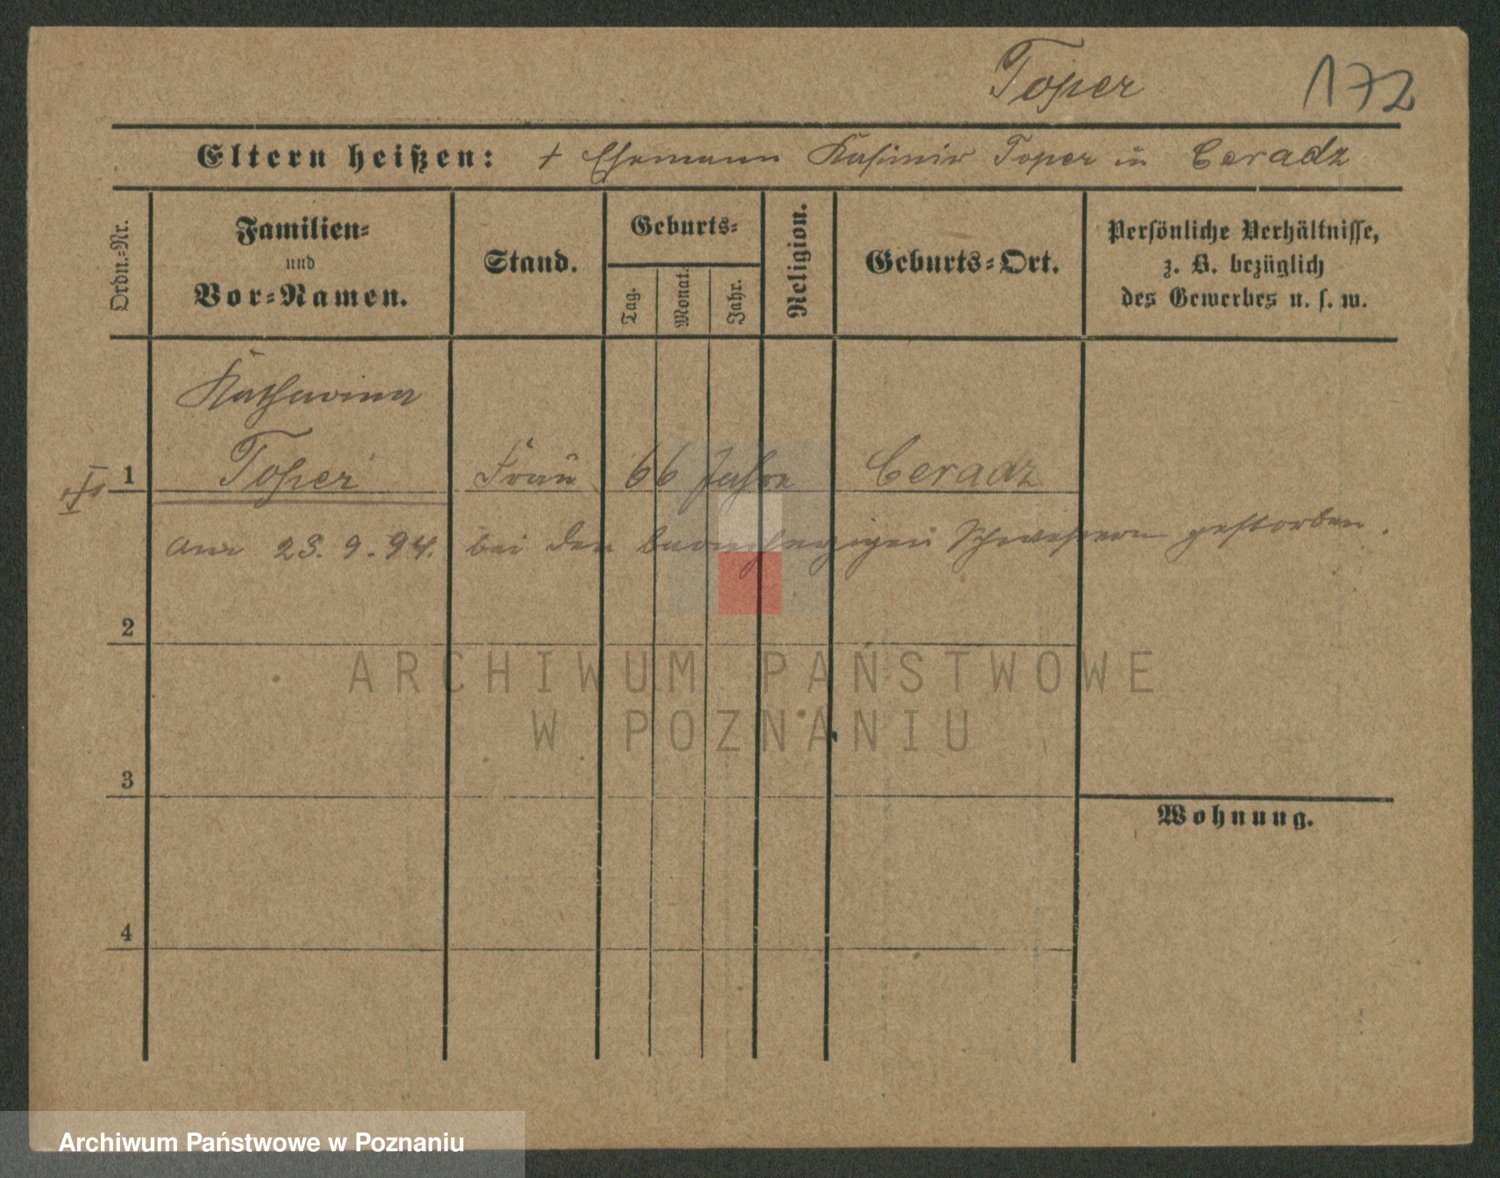 Toper 172
Eltern heißen: + Ehemann Kasimir Toper in Ceradz
Ordn.-Nr.
Familien-
und
Vor-Namen.
Stand.
Geburts-
Tag.
Monat.
Jahr.
Religion.
Geburts-Ort.
Persönliche Verhältnisse,
z. B. bezüglich
des Gewerbes u. s. w.
Katharina
1 Toper Frau 66 Jahre Ceradz
am 23. 9. 94. bei den barmherzigen Schwestern gestorben.
2
ARCHIWUM PAŃSTWOWE
W POZNANIU
3
Wohnung.
4
Archiwum Państwowe w Poznaniu